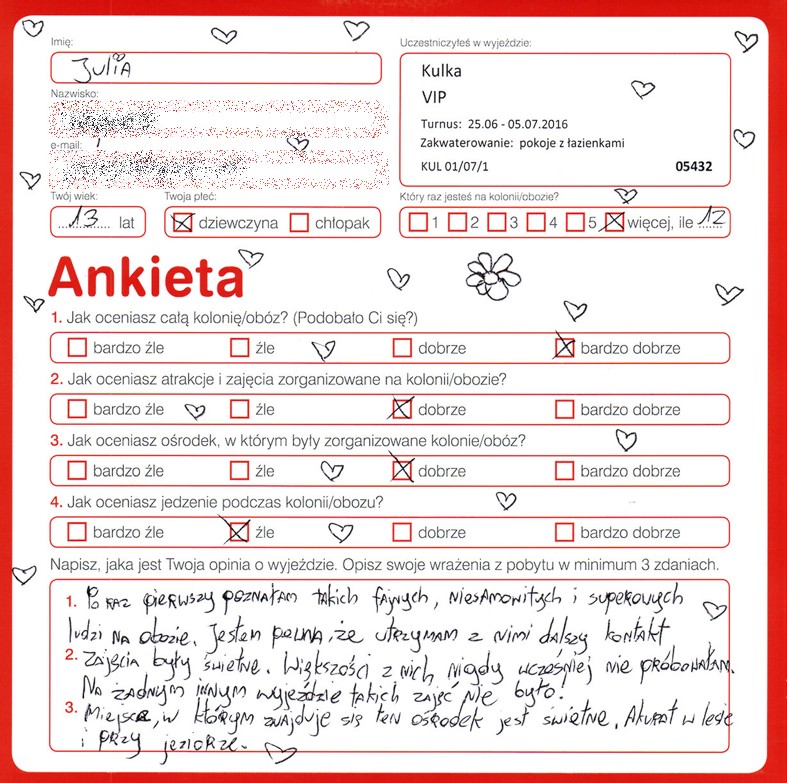 Imię:
Julia
Uczestniczyłeś w wyjeździe:
Kulka
VIP
Turnus: 25.06 - 05.07.2016
Zakwaterowanie: pokoje z łazienkami
KUL 01/07/1 05432
Nazwisko:
e-mail:
Twój wiek:
13 lat
Twoja płeć:
dziewczyna chłopak
Który raz jesteś na kolonii/obozie?
1 2 3 4 5 więcej, ile 12
Ankieta
1. Jak oceniasz całą kolonię/obóz? (Podobało Ci się?)
bardzo źle źle dobrze bardzo dobrze
2. Jak oceniasz atrakcje i zajęcia zorganizowane na kolonii/obozie?
bardzo źle źle dobrze bardzo dobrze
3. Jak oceniasz ośrodek, w którym były zorganizowane kolonie/obóz?
bardzo źle źle dobrze bardzo dobrze
4. Jak oceniasz jedzenie podczas kolonii/obozu?
bardzo źle źle dobrze bardzo dobrze
Napisz, jaka jest Twoja opinia o wyjeździe. Opisz swoje wrażenia z pobytu w minimum 3 zdaniach.
1. Po raz pierwszy poznałam takich fajnych, niesamowitych i superowych
ludzi na obozie. Jestem pełna, że utrzymam z nimi dalszy kontakt
2. Zajęcia były świetne. Większości z nich nigdy wcześniej nie próbowałam.
Na żadnym innym wyjeździe takich zajęć nie było!
3. Miejsce, w którym znajduje się ten ośrodek jest świetne. Akurat w lesie
i przy jeziorze.